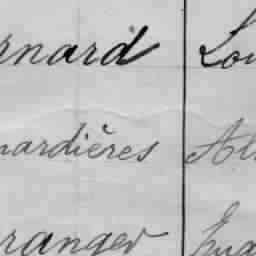 rnard Lou
nardières Al
ranger